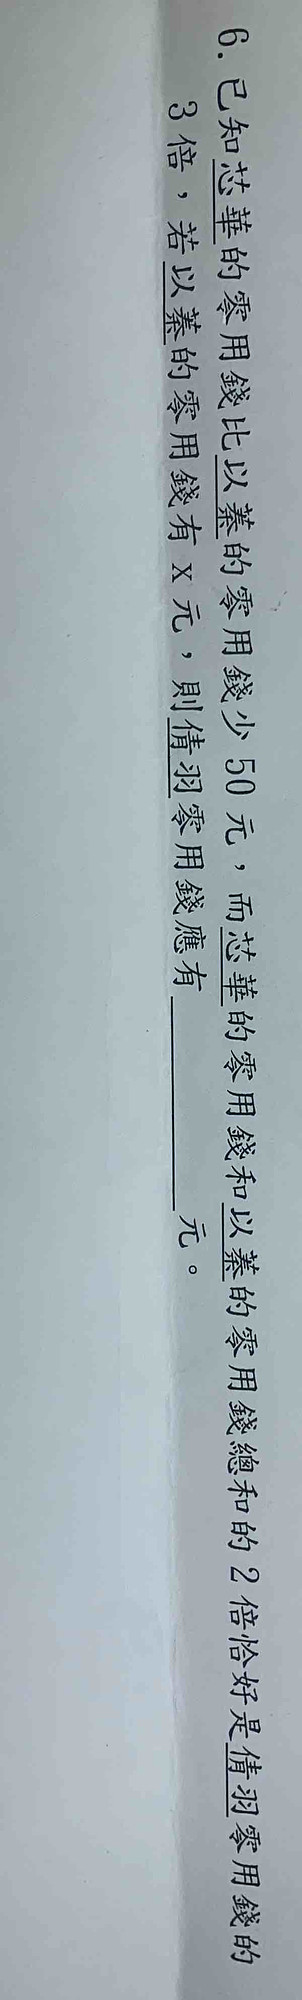 6. 已知芯華的零用錢比以蓁的零用錢少 50 元，而芯華的零用錢和以蓁的零用錢總和的 2 倍恰好是倩羽零用錢的
3 倍，若以蓁的零用錢有 x 元，則倩羽零用錢應有________元。